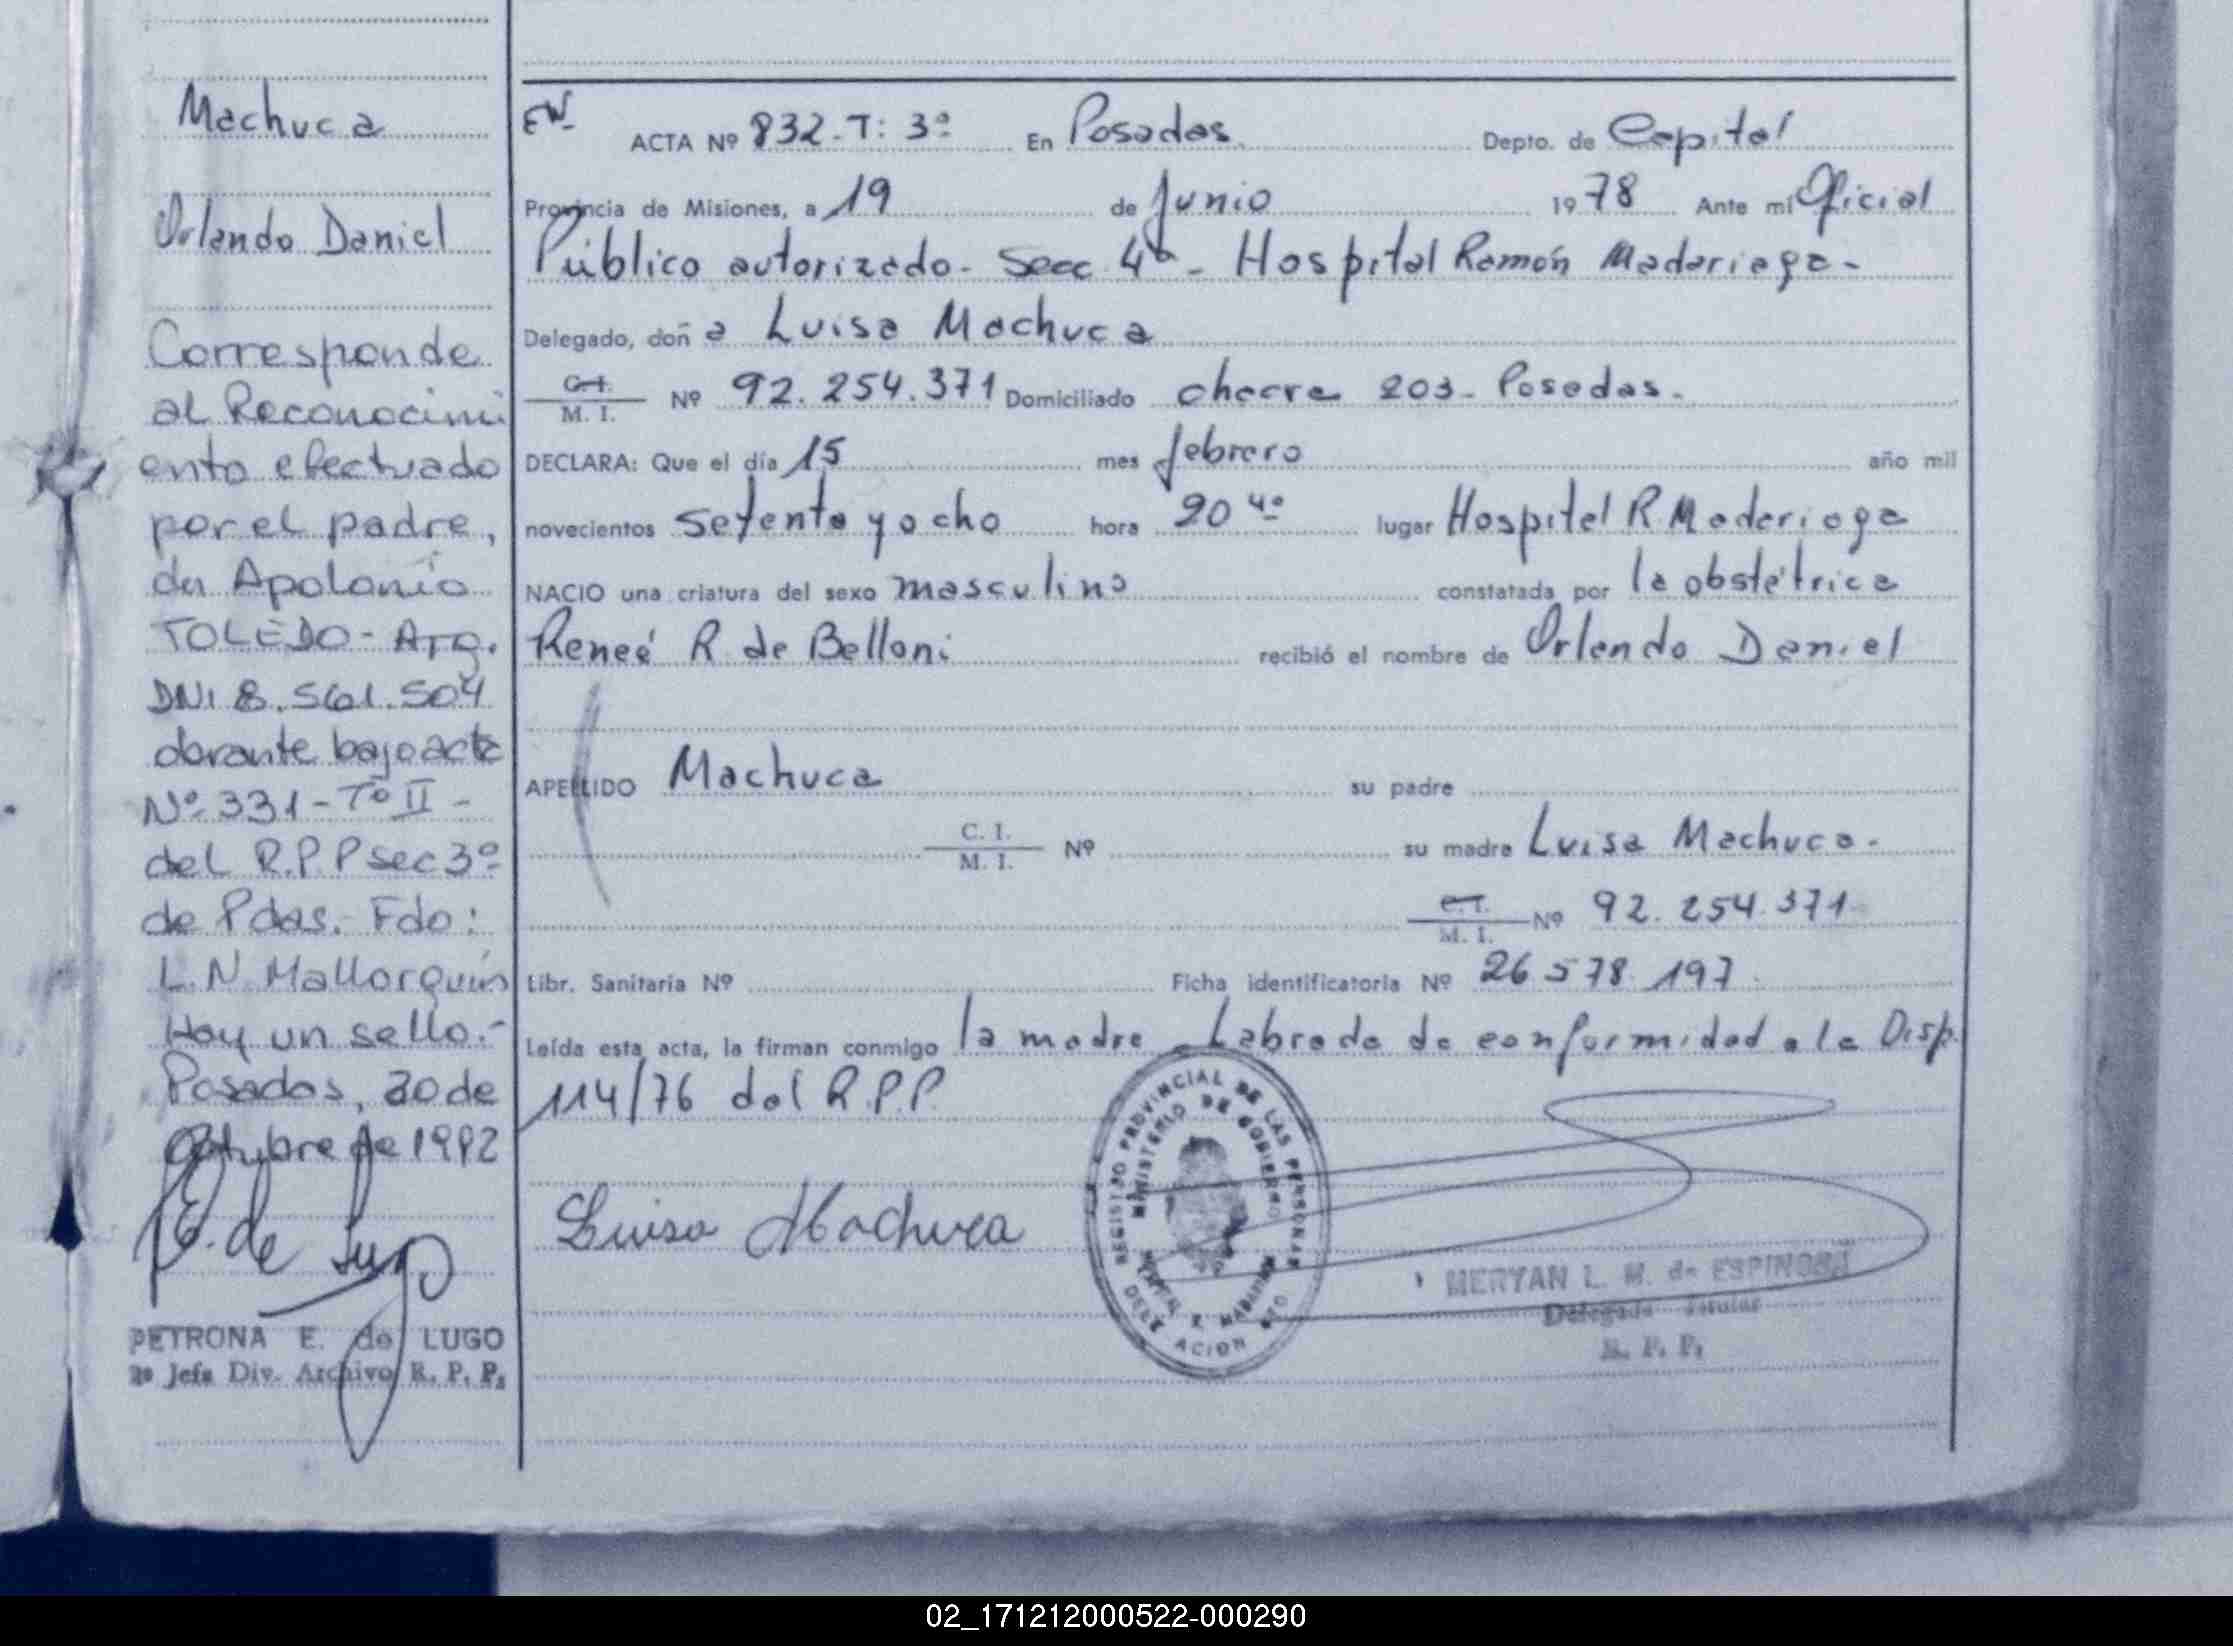 Machuca
Orlando Daniel
Corresponde
al Reconocimi
ento efectuado
por el padre,
dn Apolonio
TOLEDO - Arg.
DNI 8.561.504
obrante bajo acta
Nº 331 - Tº II -
del R.P.P sec 3º
de Pdas. - Fdo:
L.N. Mallorquín
Hay un sello.-
Posadas, 20 de
Octubre de 1982
E. de Lugo
PETRONA E. de LUGO
2º Jefe Div. Archivo R. P. P.
ACTA Nº 832 - T: 3º En Posadas Depto. de Capital
Provincia de Misiones, a 19 de Junio 1978 Ante mí Oficial
Público autorizado - Secc 4ª - Hospital Ramón Madariaga -
Delegado, doña Luisa Machuca
C.I. / M. I. Nº 92.254.371 Domiciliado chacra 203 - Posadas.
DECLARA: Que el día 15 mes febrero año mil
novecientos setenta y ocho hora 20 40 lugar Hospital R Madariaga
NACIO una criatura del sexo masculino constatada por la obstétrica
Reneé R. de Belloni recibió el nombre de Orlando Daniel
APELLIDO Machuca su padre
C. I. / M. I. Nº su madre Luisa Machuca.
C.I. / M. I. Nº 92.254.371
Libr. Sanitaria Nº Ficha identificatoria Nº 26 578 197
Leída esta acta, la firman conmigo la madre - Labrada de conformidad a la Disp.
114/76 del R.P.P.
Luisa Machuca
REGISTRO PROVINCIAL DE LAS PERSONAS
MINISTERIO DE GOBIERNO
MERYAN L. M. de ESPINOSA
Delegada Titular
R. P. P.
02_171212000522-000290